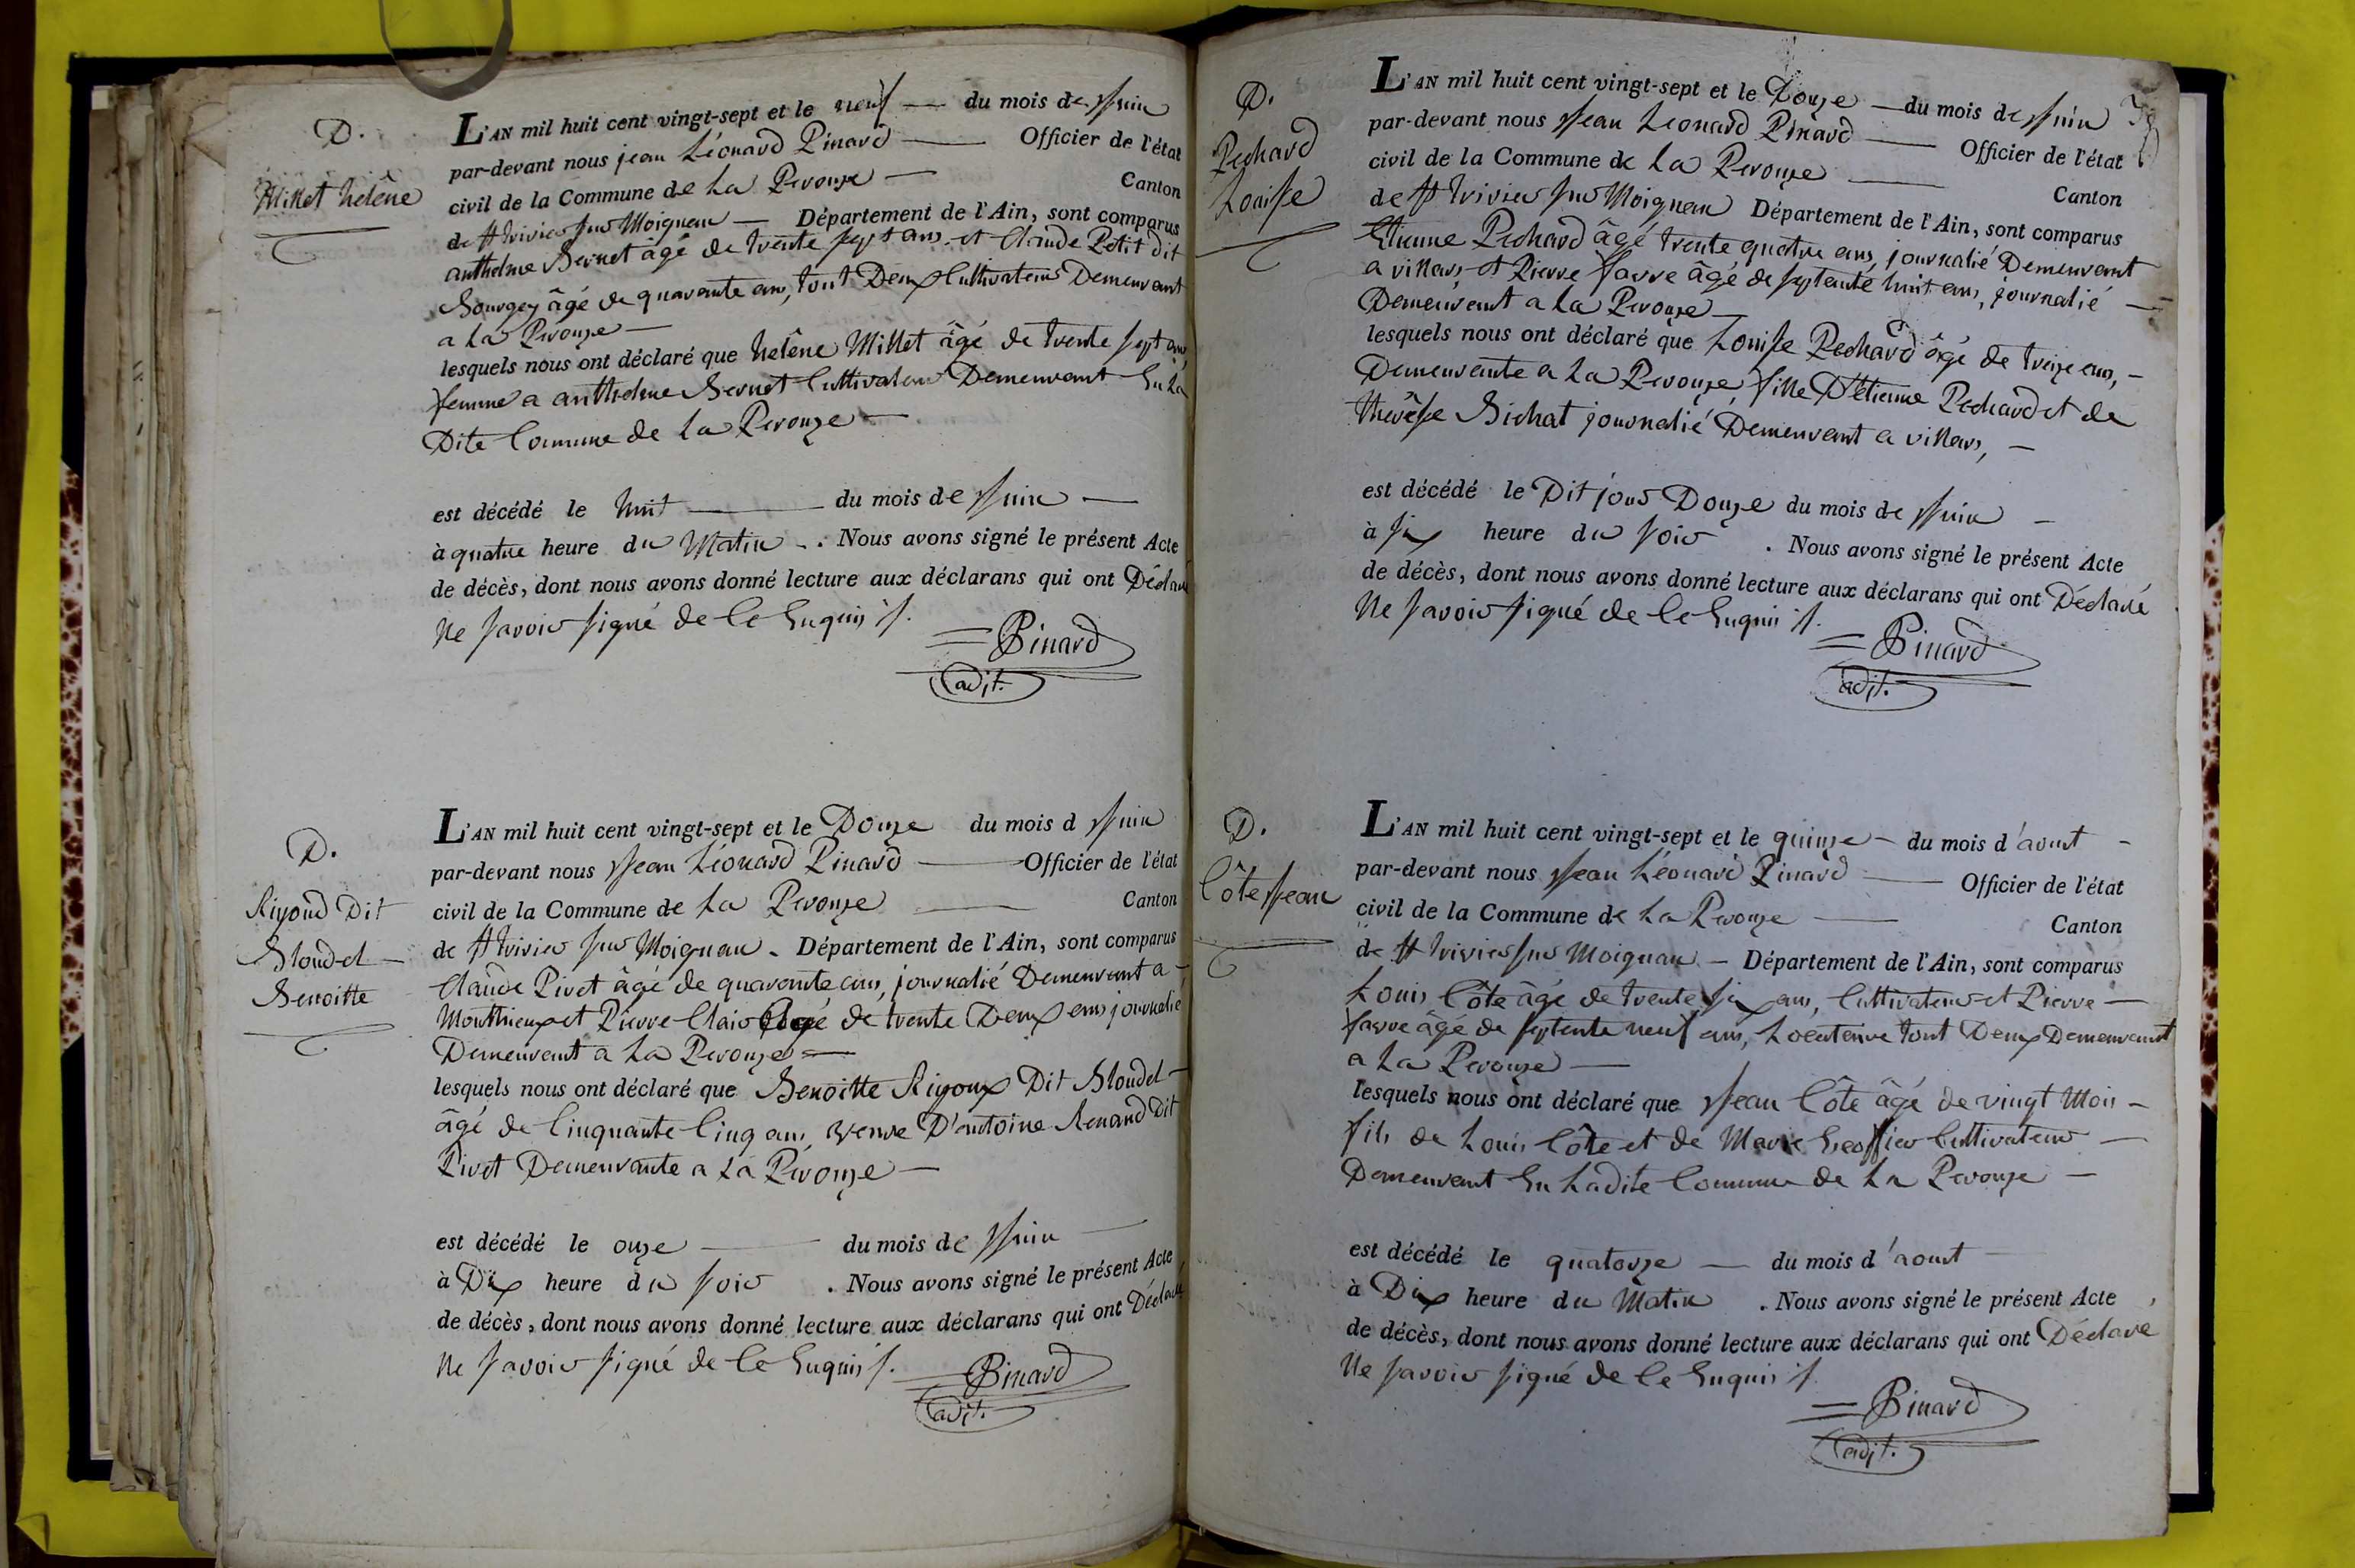 D.
Millet helêne
L'AN mil huit cent vingt-sept et le neuf — du mois de Juin
par-devant nous jean Léonard Pinard — Officier de l'état
civil de la Commune de La Perouze — Canton
de St trivier sur Moignan — Département de l'Ain, sont comparus
anthelme Bernet âgé de trente sept ans et Claude Petit dit
Bourgey âgé de quarante ans, tout Deux Cultivateurs Demeurant
a La Pérouze —
lesquels nous ont déclaré que helêne Millet âgé de trente sept ans,
femme a anthelme Bernet Cultivateur Demeurant En La
Dite Commune de La Perouze —
est décédé le huit — du mois de Juin —
à quatre heure du Matin - . Nous avons signé le présent Acte
de décès, dont nous avons donné lecture aux déclarans qui ont Déclaré
Ne savoir signé de Ce Enquis /.
Pinard
adjt.
D.
Rigoud Dit
Bloudel
Benoitte
L'AN mil huit cent vingt-sept et le Douze du mois d Juin
par-devant nous Jean Léonard Pinard — Officier de l'état
civil de la Commune de La Perouze — Canton
de St trivier sur Moignan - Département de l'Ain, sont comparus
Claude Pivet âgé de quarante ans, journalié Demeurant a -
Monthieux et Pierre Clair âgé de trente Deux ans journalié
Demeurant a La Perouze =
lesquels nous ont déclaré que Benoitte Rigoux Dit Bloudel -
âgé de Cinquante Cinq ans, Veuve D'antoine Renand Dit
Pivet Demeurante a La Pérouze —
est décédé le onze — du mois de Juin —
à Dix heure du soir . Nous avons signé le présent Acte
de décès, dont nous avons donné lecture aux déclarans qui ont Déclaré
Ne savoir signé de Ce Enquis /.
Pinard
adjt.
D.
Pechard
Louise
L'AN mil huit cent vingt-sept et le Douze — du mois de Juin
par-devant nous Jean Leonard Pinard — Officier de l'état
civil de la Commune de La Perouze — Canton
de St trivier sur Moignan Département de l'Ain, sont comparus
Etienne Pechard âgé trente quatre ans, journalié Demeurant
a villars et Pierre favre âgé de septente huit ans, journalié —
Demeurant a La Perouze —
lesquels nous ont déclaré que Louise Pechard âgé de treize ans, -
Demeurante a La Perouze, fille D'Etienne Pechard et de
thérêse Bichat journalié Demeurant a villars, —
est décédé le Dit jour Douze du mois de Juin —
à six heure du soir . Nous avons signé le présent Acte
de décès, dont nous avons donné lecture aux déclarans qui ont Déclaré
Ne savoir signé de Ce Enquis /.
Pinard
adjt.
D.
Côte Jean
L'AN mil huit cent vingt-sept et le quinze - du mois d'aout -
par-devant nous Jean Léonard Pinard — Officier de l'état
civil de la Commune de La Perouze — Canton
de St trivier sur Moignan — Département de l'Ain, sont comparus
Louis Côte âgé de trente six ans, Cultivateur et Pierre —
favre âgé de septente neuf ans, Locateire tout Deux Demeurant
a La Perouze —
lesquels nous ont déclaré que Jean Côte âgé de vingt Mois -
fils de Louis Côte et de Marie Cultivateur —
Demeurant En Ladite Commune de La Perouze —
est décédé le quatorze — du mois d'aout —
à Dix heure du Matin . Nous avons signé le présent Acte
de décès, dont nous avons donné lecture aux déclarans qui ont Déclaré
Ne savoir signé de Ce Enquis /.
Pinard
adjt.